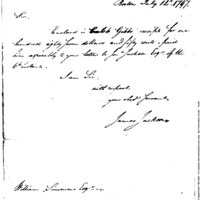 Boston July 12th 1797.
Sir,
Enclosed is Caleb Gibbs receipt for one
hundred eighty four dollars and fifty cents, paid
him agreeably to your letter to Jona Jackson Esqr of the
6th instant.
I am Sir,
with respect,
your obedt Servant,
James Jackson
William Simmons Esqr